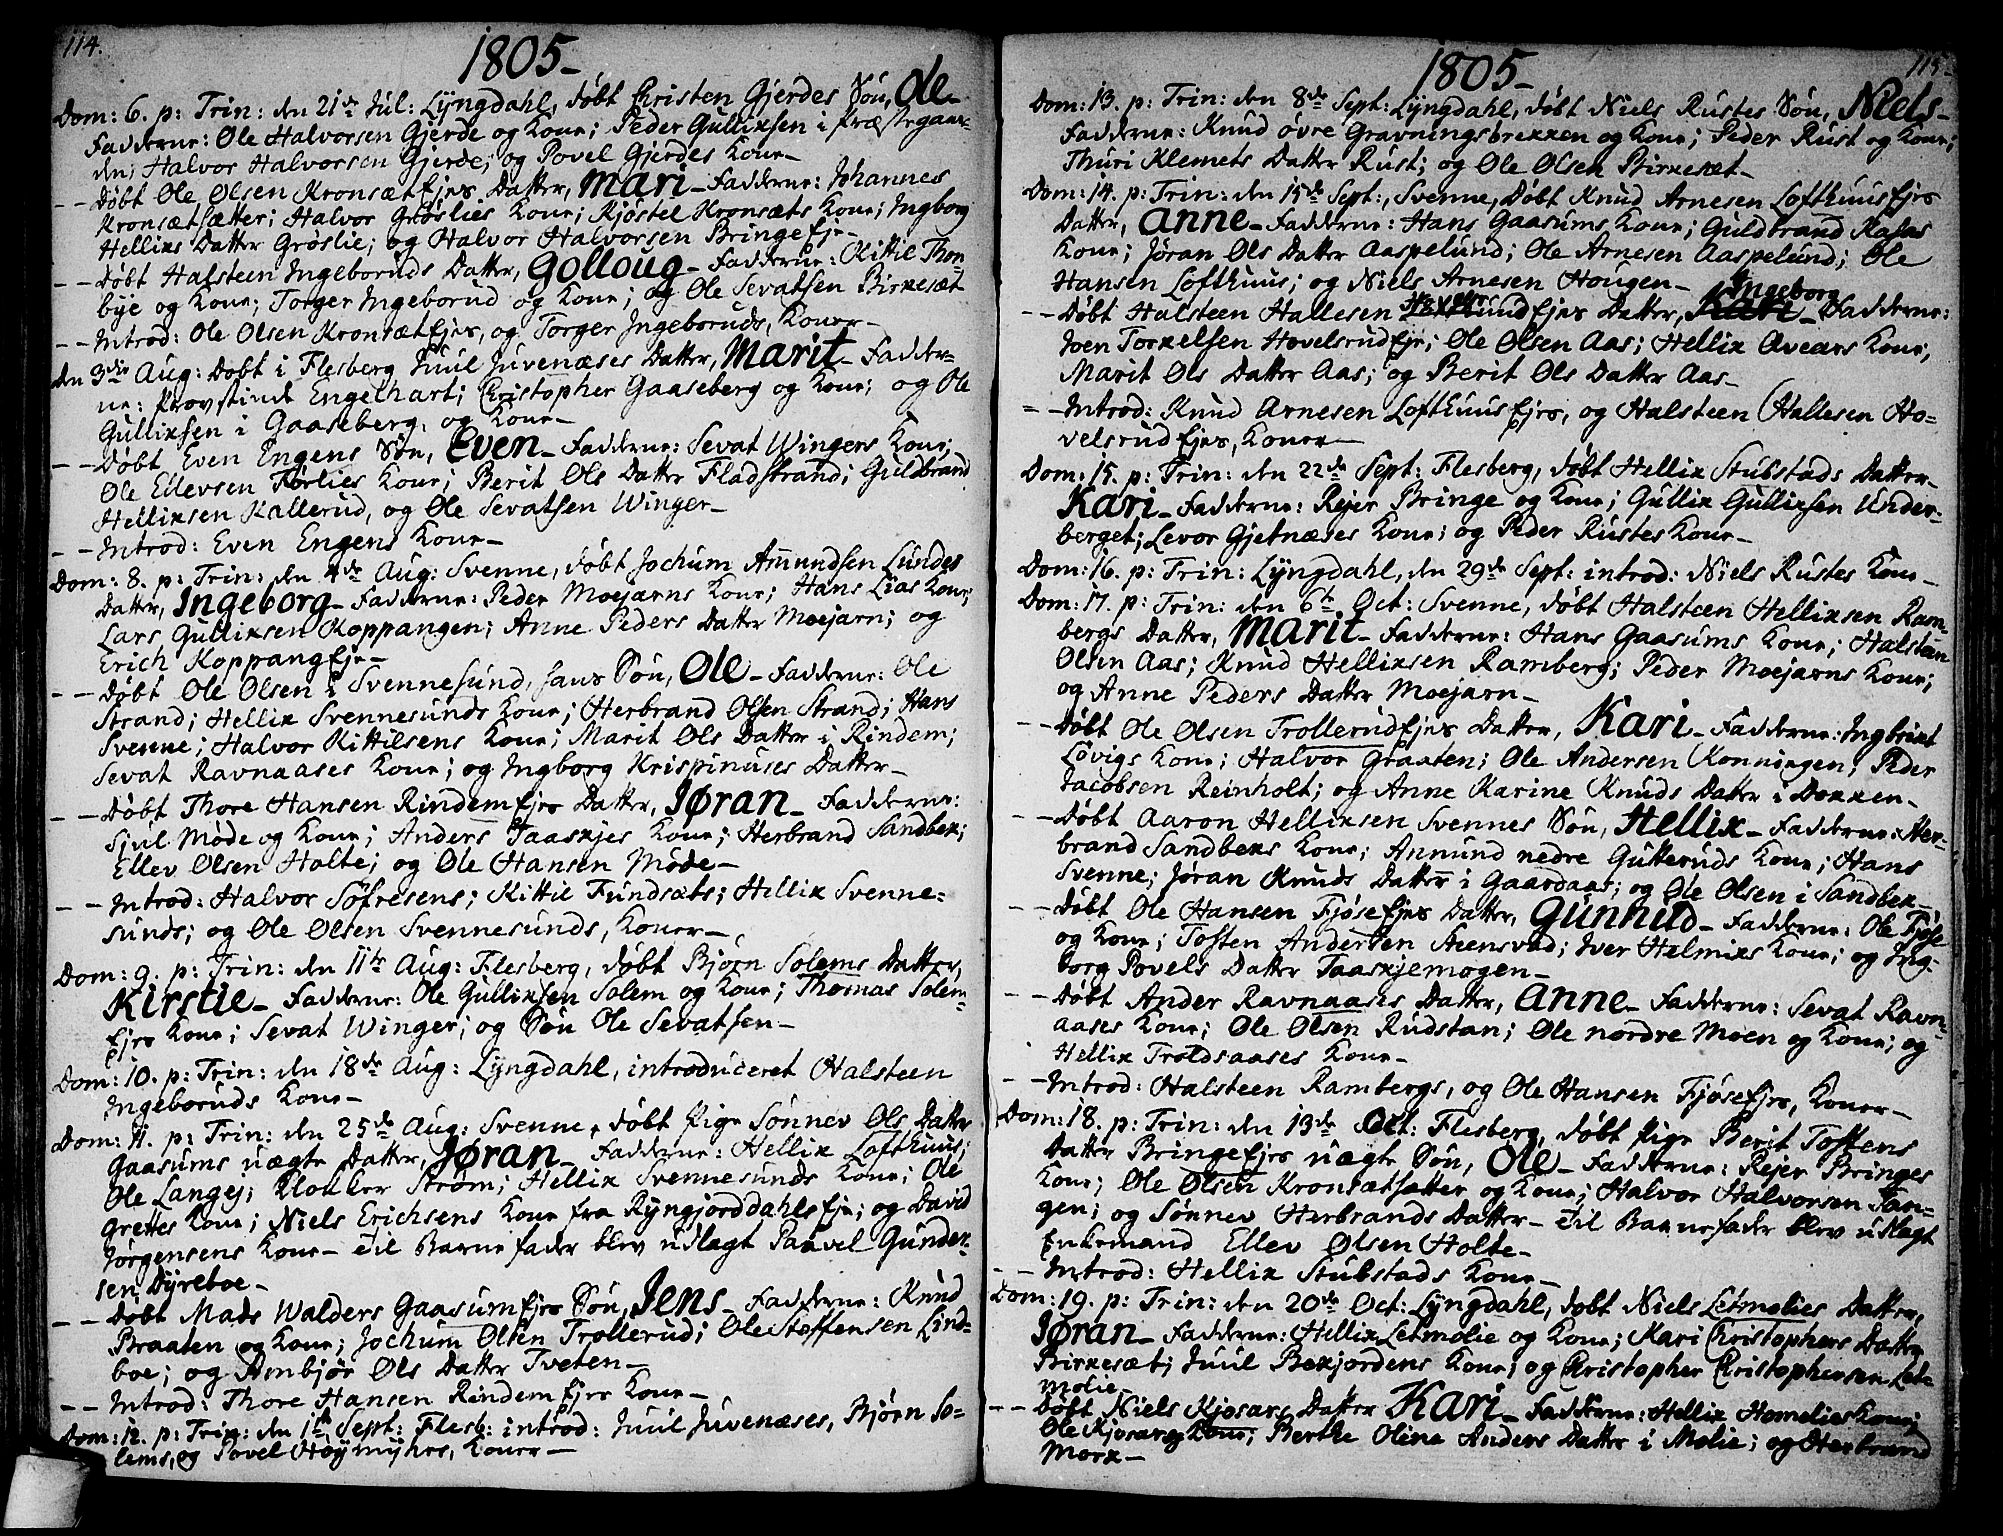 114.
1805-
Dom: 6. p: Trin: den 21de Jul: Lyngdahl, døbt Christen Gjerdes Søn, Ole-
Fadderne: Ole Halvorsen Gjerde og Kone; Peder Gullixsen i Præstegaar-
den; Halvor Halvorsen Gjerde; og Povel Gjerdes Kone-
- - Døbt Ole Olsen Kronsætejes Datter, Mari- Fadderne: Johannes
Kronsætsætter; Halvor Grøslies Kone; Kjøstel Kronsæts Kone; Ingborg
Hellixs Datter Grøslie; og Halvor Halvorsen Bringeeje-
- - Døbt Halsteen Ingeboruds Datter, Golloug- Fadderne: Kittil Thon-
bye og Kone; Torger Ingeborud og Kone; og Ole Sevatsen Birkesæt
- - Introd: Ole Olsen Kronsætejes, og Torger Ingeboruds, Koner-
den 3die Aug: Døbt i Flesberg Juul Juvenæses Datter, Marit- Fadder-
ne: Provstinde Engelhart; Christopher Gaaseberg og Kone; og Ole
Gullixsen i Gaaseberg, og Kone-
- - Døbt Even Engens Søn, Even- Fadderne: Sevat Wingers Kone;
Ole Ellevsen Førlies Kone; Berit Ols Datter Fladstrand; Guldbrand
Hellixsen Kallerud, og Ole Sevatsen Winger-
- - Introd: Even Engens Kone-
Dom: 8. p: Trin: den 4de Aug: Svenne, døbt Jochum Amundsen Lundes
Datter, Ingeborg- Fadderne: Peder Moejarns Kone; Hans Lias Kone;
Lars Gullixsen Koppangen; Anne Peders Datter Moejarn; og
Erich Koppangeje-
- - Døbt Ole Olsen i Svennesund, hans Søn, Ole- Fadderne: Ole
Strand; Hellix Svennesunds Kone; Herbrand Olsen Strand; Hans
Svenne; Halvor Kittilsens Kone; Marit Ols Datter i Rindem;
Sevat Ravnaases Kone; og Ingborg Krispinuses Datter-
- - Døbt Thore Hansen Rindemejes Datter, Jøran- Fadderne:
Sjul Møde og Kone; Anders Taaskjes Kone; Herbrand Sandbek;
Ellev Olsen Holte; og Ole Hansen Møde-
- - Introd: Halvor Søfresens; Kittil Fundsæts; Hellix Svenne-
sunds; og Ole Olsen Svennesunds, Koner-
Dom: 9. p: Trin: den 11te Aug: Flesberg, døbt Bjørn Solems Datter,
Kirstie- Fadderne: Ole Gullixsen Solem og Kone; Thomas Solem-
ejes Kone; Sevat Winger; og Søn Ole Sevatsen-
Dom: 10. p: Trin: den 18de Aug: Lyngdahl, introduceret Halsteen
Ingeboruds Kone-
Dom: 11. p: Trin: den 25de Aug: Svenne, døbt Pige Sønnev Ols Datter
Gaasums uægte Datter, Jøran- Fadderne: Hellix Lofthuus;
Ole Langej; Klokker Strøm; Hellix Svennesunds Kone; Ole
Grettes Kone; Niels Erichsens Kone fra Ryngjorddahlseje; og David
Jørgensens Kone- Til Barnefader blev udlagt Paavel Gunder-
sen Dyreboe-
- - Døbt Mads Walders Gaasumejes Søn, Jens- Fadderne: Knud
Braaten og Kone; Jochum Olsen Trollerud; Ole Steffensen Lind-
boe; og Ambjør Ols Datter Tveten-
- - Introd: Thore Hansen Rindemejes Kone-
Dom: 12. p: Trin: den 1ste Sept: Flesb: introd: Juul Juvenæses, Bjørn So-
lems, og Povel Høymyhrs, Koner-
115-
1805-
Dom: 13. p: Trin: den 8de Sept: Lyngdahl, døbt Niels Rustes Søn, Niels-
Fadderne: Knud øvre Gravningsbrekken og Kone; Peder Rust og Kone;
Thuri Klemets Datter Rust; og Ole Olsen Birkesæt-
Dom: 14. p: Trin: den 15de Sept:, Svenne, døbt Knud Arnesen Lofthuusejes
Datter, Anne- Fadderne: Hans Gaasums Kone; Guldbrand Rasas
Kone; Jøran Ols Datter Aaspelund; Ole Arnesen Aaspelund; Ole
Hansen Lofthuus; og Niels Arnesen Hougen-
- - Døbt Halsteen Hallesen Hovelsrudejes Datter, Ingeborg Kari- Fadderne:
Joen Torkelsen Hovelsrudeje; Ole Olsen Aas; Hellix Avears Kone;
Marit Ols Datter Aas; og Berit Ols Datter Aas-
- - Introd: Knud Arnesen Lofthuusejes, og Halsteen Hallesen Ho-
velsrudejes, Koner-
Dom: 15. p: Trin: den 22de Sept: Flesberg, døbt Hellix Stubstads Datter-
Kari- Fadderne: Rejer Bringe og Kone; Gullix Gullixsen Under-
berget; Levor Gjetnæses Kone; og Peder Rustes Kone-
Dom: 16. p: Trin: Lyngdahl, den 29de Sept: introd: Niels Rustes Kone-
Dom: 17. p: Trin: den 6te Oct: Svenne, døbt Halsteen Hellixsen Ram-
bergs Datter, Marit- Fadderne: Hans Gaasums Kone; Halsteen
Olsen Aas; Knud Hellixsen Ramberg; Peder Moejarns Kone;
og Anne Peders Datter Moejarn-
- - Døbt Ole Olsen Trollerudejes Datter, Kari- Fadderne: Ingbrikt
Løvigs Kone; Halvor Graaten; Ole Andersen Konningen; Peder
Jacobsen Reinholt; og Anne Karine Knuds Datter i Dokken-
- - Døbt Aaron Hellixsen Svennes Søn, Hellix- Fadderne: Her-
brand Sandbeks Kone; Amund nedre Gutteruds Kone; Hans
Svenne; Jøran Knuds Datter i Gaardaas; og Ole Olsen i Sandbek-
- - Døbt Ole Hansen Fjøsejes Datter, Gunhild- Fadderne: Ole Fjøse
og Kone; Tosten Andersen Steensrud; Iver Helmiks Kone; og Ing-
borg Povels Datter Taaskjemogen-
- - Døbt Ander Ravnaases Datter, Anne- Fadderne: Sevat Ravn-
aases Kone; Ole Olsen Rudstan; Ole nordre Moen og Kone; og
Hellix Troldsaases Kone-
- - Introd: Halsteen Rambergs, og Ole Hansen Fjøsejes, Koner-
Dom: 18. p: Trin: den 13de Oct: Flesberg, døbt Pige Berit Tostens
Datter Bringeejes uægte Søn, Ole- Fadderne: Rejer Bringes
Kone; Ole Olsen Kronsætsætter og Kone; Halvor Halvorsen Tan-
gen; og Sønnev Herbrands Datter- Til Barnefader blev udlagt
Enkemand Ellev Olsen Holte-
- - Introd: Hellix Stubstads Kone-
Dom: 19. p: Trin: den 20de Oct: Lyngdahl, døbt Niels Letmolies Datter,
Jøran- Fadderne: Hellix Letmolie og Kone; Kari Christophers Datter
Birkesæt; Juul Bekjordens Kone; og Christopher Christophersen Let-
molie-
- - Døbt Niels Kjosars Datter Kari- Fadderne: Hellix Homelies Kone;
Ole Kjosar og Kone; Berthe Oline Anders Datter i Molie; og Herbrand
Mork-